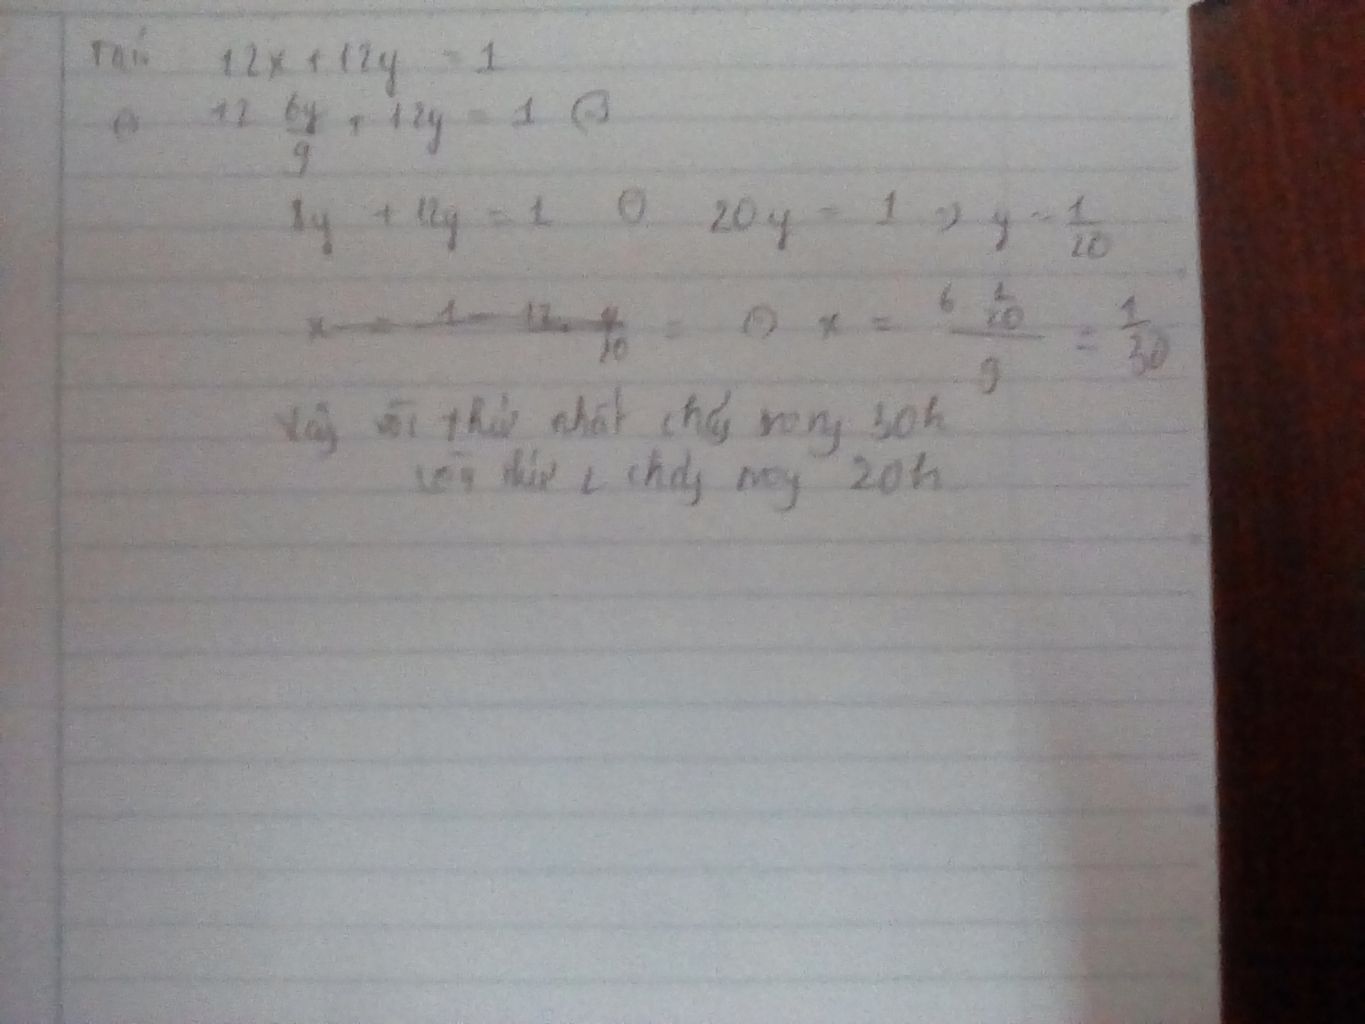 Thế 12x + 12y = 1
⇔ 12 6y/9 + 12y = 1 ⇔
8y + 12y = 1 ⇔ 20y = 1 ⇒ y = 1/20
x = 1 - 12. y/20 = ⇔ x = 6 1/20 / 9 = 1/30
Vậy vòi thứ nhất chảy trong 30h
vòi thứ 2 chảy trong 20h